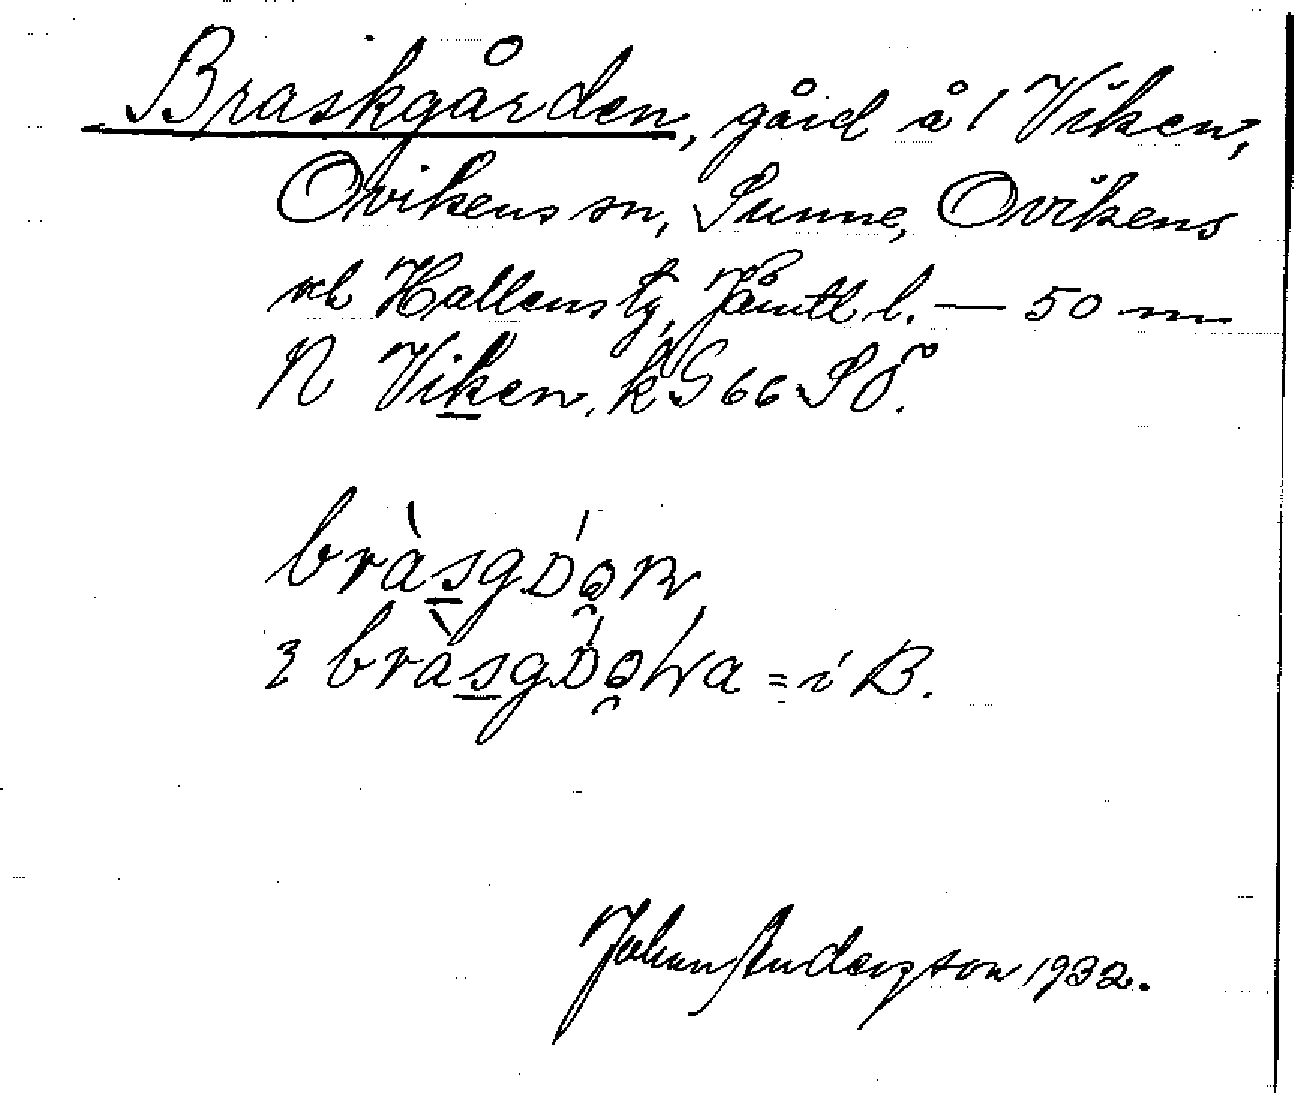 Braskgården, gård å 1 Viken,
Ovikens sn, Sunne, Ovikens
och Hallens tg, Jämtl. l. — 50 m
N Viken. k S 66 SÖ.
i B.
Johan Anderson 1932.